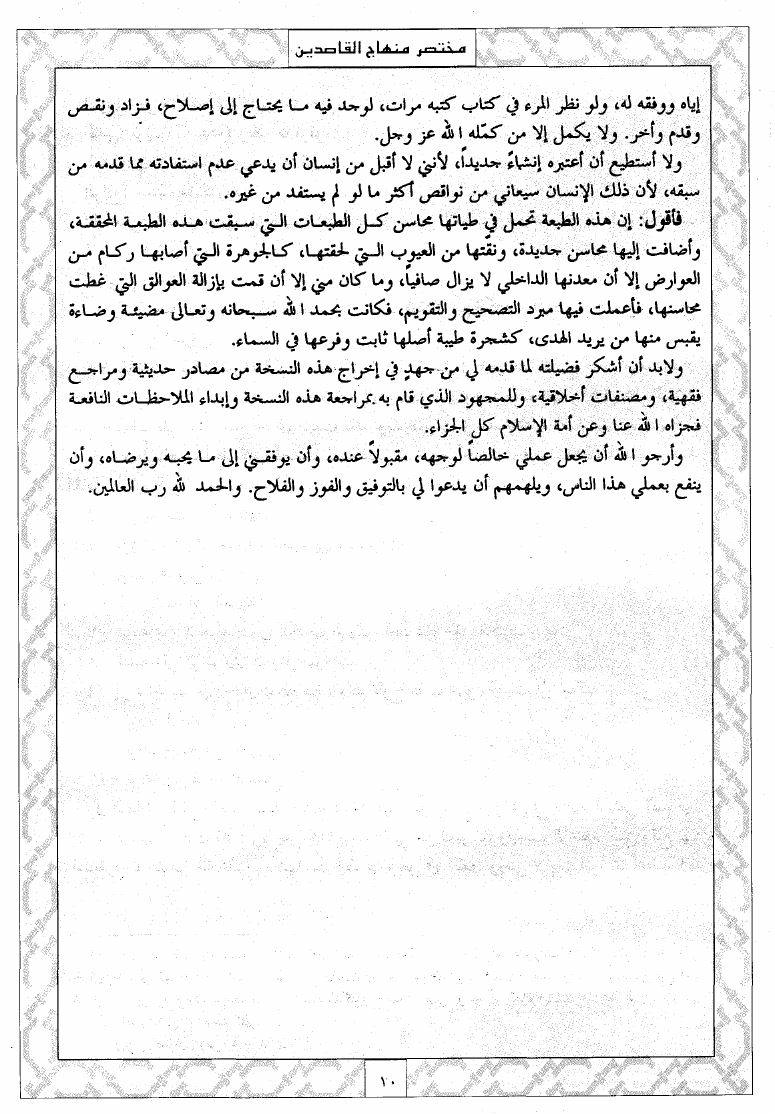 مختصر منهاج القاصدين
إياه ووفقه له، ولو نظر المرء في كتاب كتبه مرات، لوجد فيه ما يحتاج إلى إصلاح، فزاد ونقص
وقدم وأخر. ولا يكمل إلا من كمّله الله عز وجل.
ولا أستطيع أن أعتبره إنشاءً جديداً، لأنني لا أقبل من إنسان أن يدعي عدم استفادته مما قدمه من
سبقه، لأن ذلك الإنسان سيعاني من نواقص أكثر ما لو لم يستفد من غيره.
فأقول: إن هذه الطبعة تحمل في طياتها محاسن كل الطبعات التي سبقت هذه الطبعة المحققة،
وأضافت إليها محاسن جديدة، ونقتها من العيوب التي لحقتها، كالجوهرة التي أصابها ركام من
العوارض إلا أن معدنها الداخلي لا يزال صافياً، وما كان مني إلا أن قمت بإزالة العوالق التي غطت
محاسنها، فأعملت فيها مبرد التصحيح والتقويم، فكانت بحمد الله سبحانه وتعالى مضيئة وضاءة
يقبس منها من يريد الهدى، كشجرة طيبة أصلها ثابت وفرعها في السماء.
ولابد أن أشكر فضيلته لما قدمه لي من جهدٍ في إخراج هذه النسخة من مصادر حديثية ومراجع
فقهية، ومصنفات أخلاقية، وللمجهود الذي قام به بمراجعة هذه النسخة وإبداء الملاحظات النافعة
فجزاه الله عنا وعن أمة الإسلام كل الجزاء.
وأرجو الله أن يجعل عملي خالصاً لوجهه، مقبولاً عنده، وأن يوفقني إلى ما يحبه ويرضاه، وأن
ينفع بعملي هذا الناس، ويلهمهم أن يدعوا لي بالتوفيق والفوز والفلاح. والحمد لله رب العالمين.
١٠